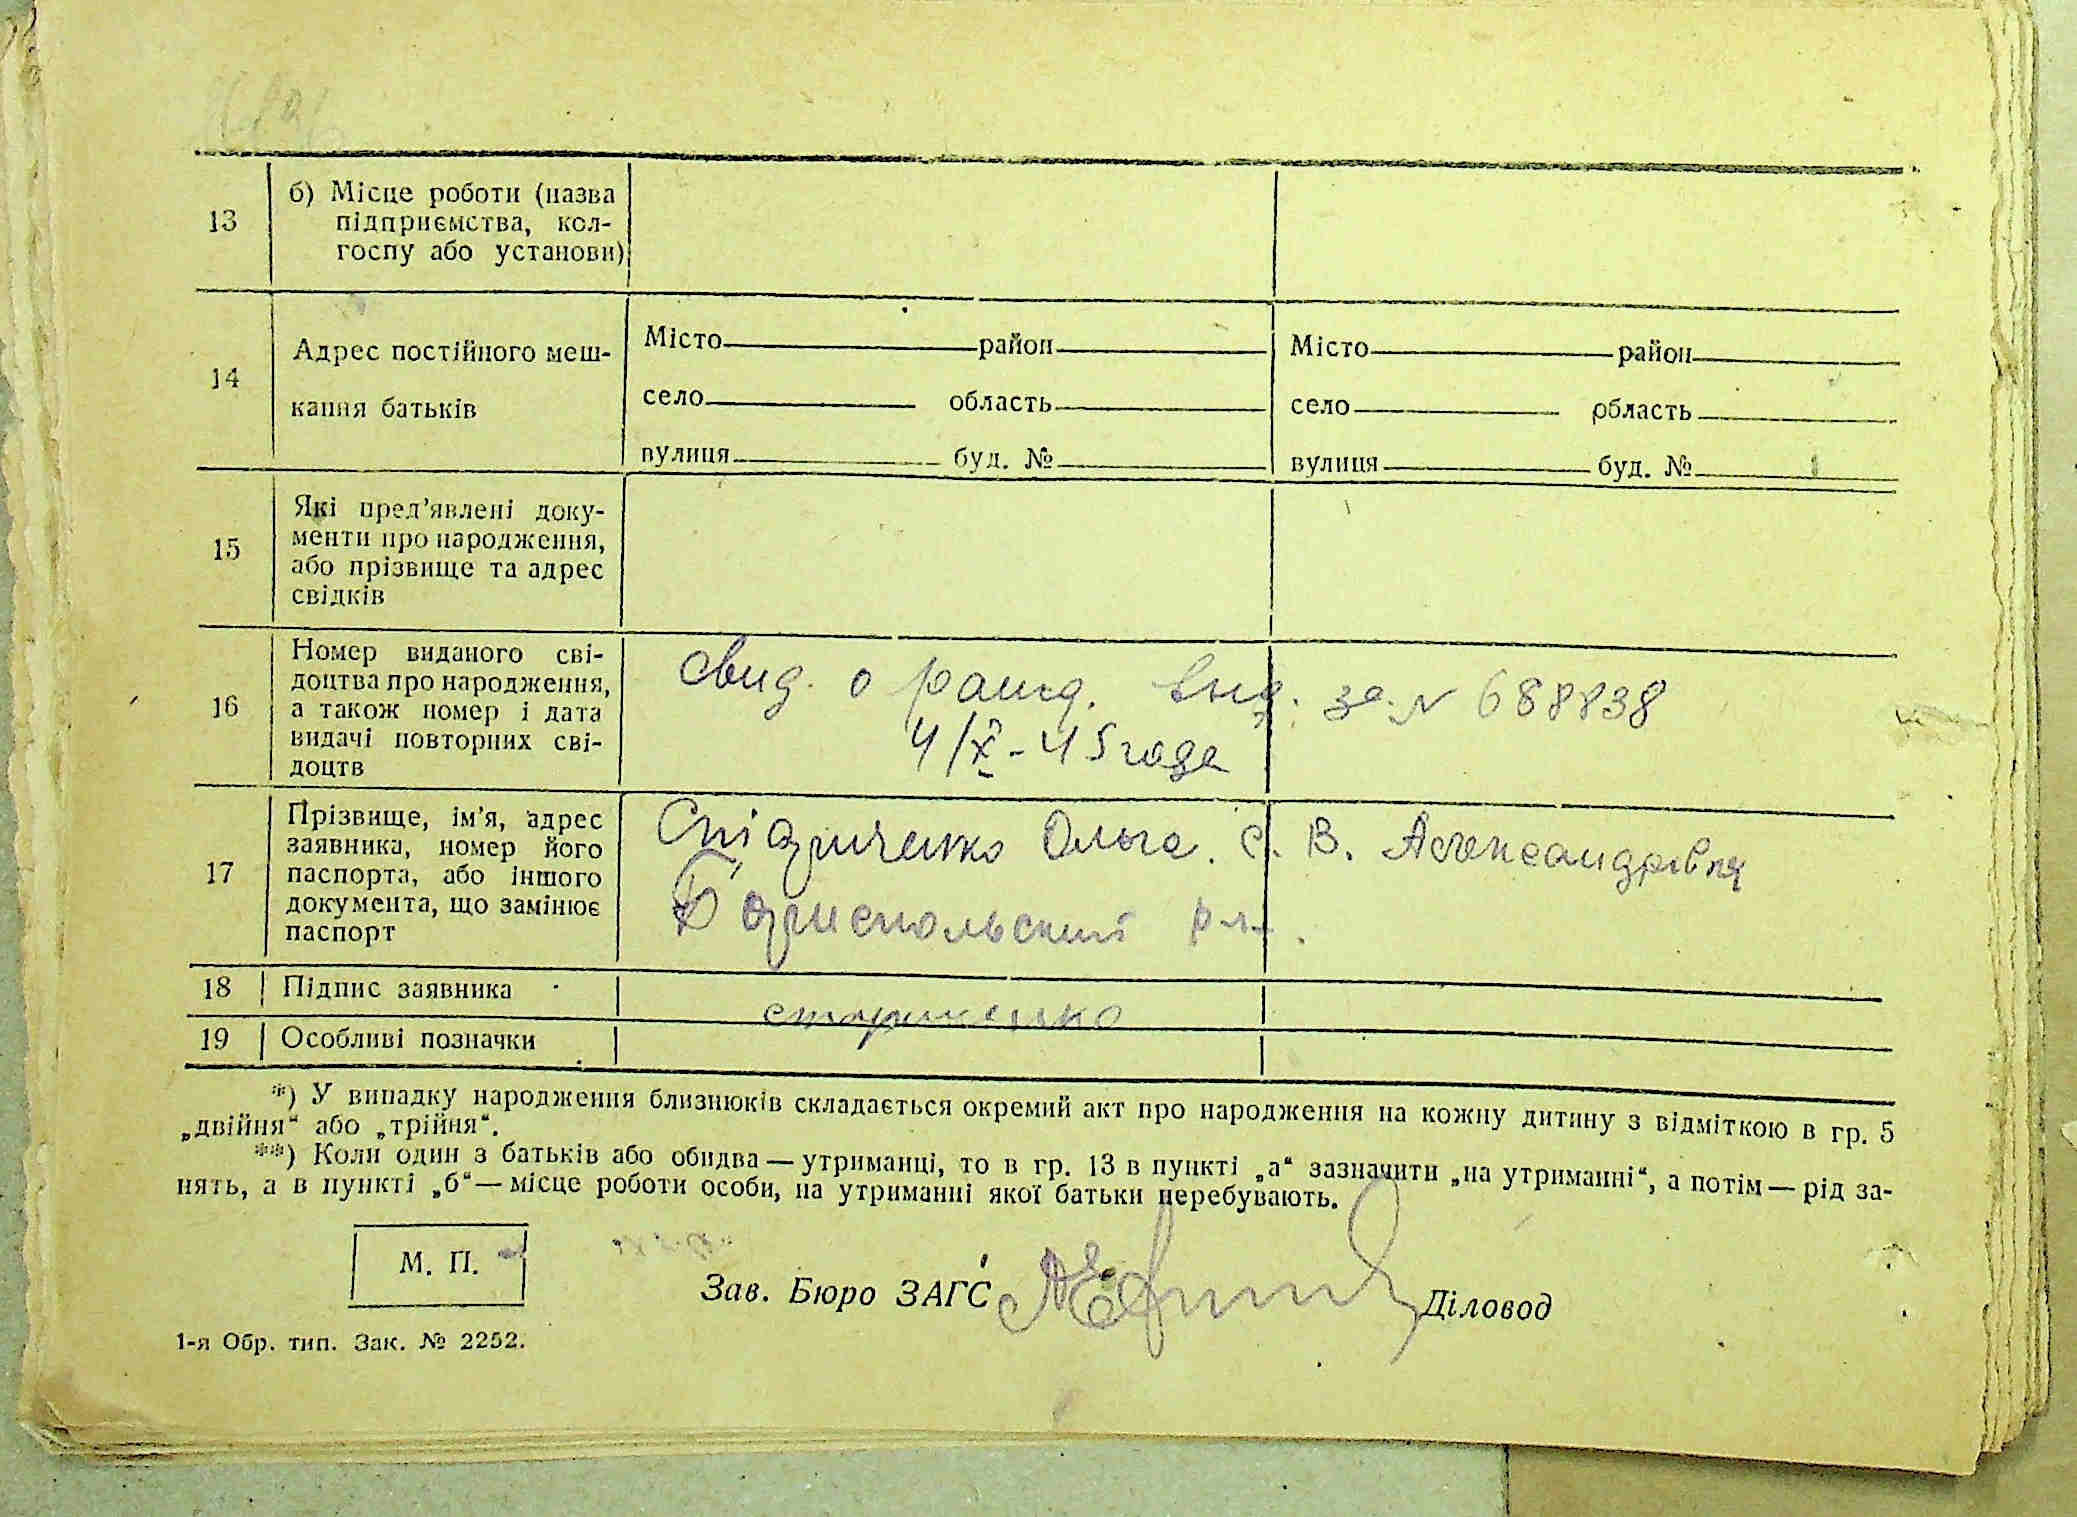 13
б) Місце роботи (назва
підприємства, кол-
госпу або установи)
14
Адрес постійного меш-
кання батьків
Місто район
село область
вулиця буд. №
Місто район
село область
вулиця буд. №
15
Які пред'явлені доку-
менти про народження,
або прізвище та адрес
свідків
16
Номер виданого сві-
доцтва про народження,
а також номер і дата
видачі повторних сві-
доцтв
свид. о рожд. выд. за N 688838
4/X-45 года
17
Прізвище, ім'я, адрес
заявника, номер його
паспорта, або іншого
документа, що замінює
паспорт
Ольга. с. В. Александрівка
Бориспольский р-н.
18
Підпис заявника
19
Особливі позначки
*) У випадку народження близнюків складається окремий акт про народження на кожну дитину з відміткою в гр. 5
„двійня“ або „трійня“.
**) Коли один з батьків або обидва — утриманці, то в гр. 13 в пункті „а“ зазначити „на утриманні“, а потім — рід за-
нять, а в пункті „б“ — місце роботи особи, на утриманні якої батьки перебувають.
М. П.
Зав. Бюро ЗАГС
Діловод
1-я Обр. тип. Зак. № 2252.